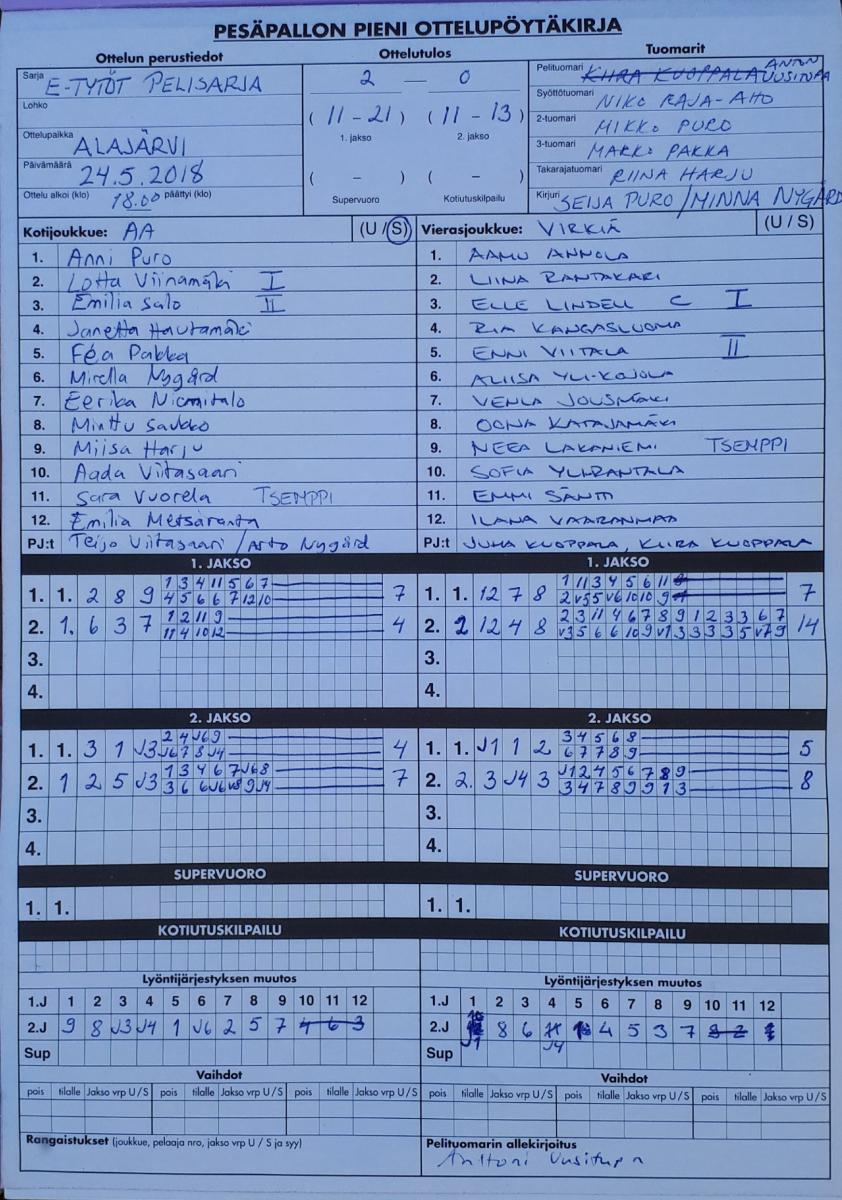 PESÄPALLON PIENI OTTELUPÖYTÄKIRJA
Ottelun perustiedot
Sarja E-TYTÖT PELISARJA
Lohko
Ottelupaikka ALAJÄRVI
Päivämäärä 24.5.2018
Ottelu alkoi (klo) 18.00 päättyi (klo)
Ottelutulos
2 — 0
(11-21) (11-13)
1. jakso 2. jakso
( - ) ( - )
Supervuoro Kotiutuskilpailu
Tuomarit
Pelituomari KIIRA KUOPPALA
Syöttötuomari NIKO RAJA-AHO
2-tuomari MIKKO PURO
3-tuomari MARKO PAKKA
Takarajatuomari RIINA HARJU
Kirjuri SEIJA PURO/MINNA NYGÅRD
Kotijoukkue: AA (U/S)
1. Anni Puro
2. Lotta Viinamäki I
3. Emilia Salo II
4. Janetta Hautamäki
5. Féa Pakka
6. Mirella Nygård
7. Eerika Niemitalo
8. Minttu Saukko
9. Miisa Harju
10. Aada Viitasaari
11. Sara Vuorela TSEMPPI
12. Emilia Metsäranta
PJ:t Teijo Viitasaari/Arto Nygård
Vierasjoukkue: VIRKIÄ (U/S)
1. AAMU ANNOLA
2. LIINA RANTAKARI
3. ELLE LINDELL C I
4. RIA KANGASLUOMA
5. ENNI VIITALA II
6. ALIISA YLI-KOJOLA
7. VENLA JOUSMÄKI
8. OONA KATAJAMÄKI
9. NEEA LAKANIEMI TSEMPPI
10. SOFIA YLI-RANTALA
11. EMMI SÄNTTI
12. ILANA VAARANMAA
PJ:t JUHA KUOPPALA, KIIRA KUOPPALA
1. JAKSO
1. 1. 2 8 9 1 3 4 11 5 6 7 7
4 5 6 6 7 12 10
2. 1. 6 3 7 1 2 11 9 4
11 4 10 12
3.
4.
1. JAKSO
1. 1. 12 7 8 1 11 3 4 5 6 11 7
2 V5 5 V6 10 10 9
2. 2 12 4 8 2 3 11 4 6 7 8 9 1 2 3 3 6 7 14
V3 5 6 6 10 9 V1 3 3 3 3 5 V7 9
3.
4.
2. JAKSO
1. 1. 3 1 J3 2 4 J6 9 4
J6 7 8 J4
2. 1 2 5 J3 1 3 4 6 7 J6 8 7
3 6 6 J6 V8 9 J4
3.
4.
2. JAKSO
1. 1. J1 1 2 3 4 5 6 8 5
6 7 7 8 9
2. 2. 3 J4 3 J1 2 4 5 6 7 8 9 8
3 4 7 8 9 9 1 3
3.
4.
SUPERVUORO
1. 1.
SUPERVUORO
1. 1.
KOTIUTUSKILPAILU
KOTIUTUSKILPAILU
Lyöntijärjestyksen muutos
1.J 1 2 3 4 5 6 7 8 9 10 11 12
2.J 9 8 J3 J4 1 J6 2 5 7 4 6 3
Sup
Lyöntijärjestyksen muutos
1.J 1 2 3 4 5 6 7 8 9 10 11 12
2.J J1 8 6 J4 4 5 3 7
Sup
Vaihdot
pois tilalle Jakso vrp U/S pois tilalle Jakso vrp U/S pois tilalle Jakso vrp U/S
Vaihdot
pois tilalle Jakso vrp U/S pois tilalle Jakso vrp U/S pois tilalle Jakso vrp U/S
Rangaistukset (joukkue, pelaaja nro, jakso vrp U / S ja syy)
Pelituomarin allekirjoitus
Anttoni Uusitupa